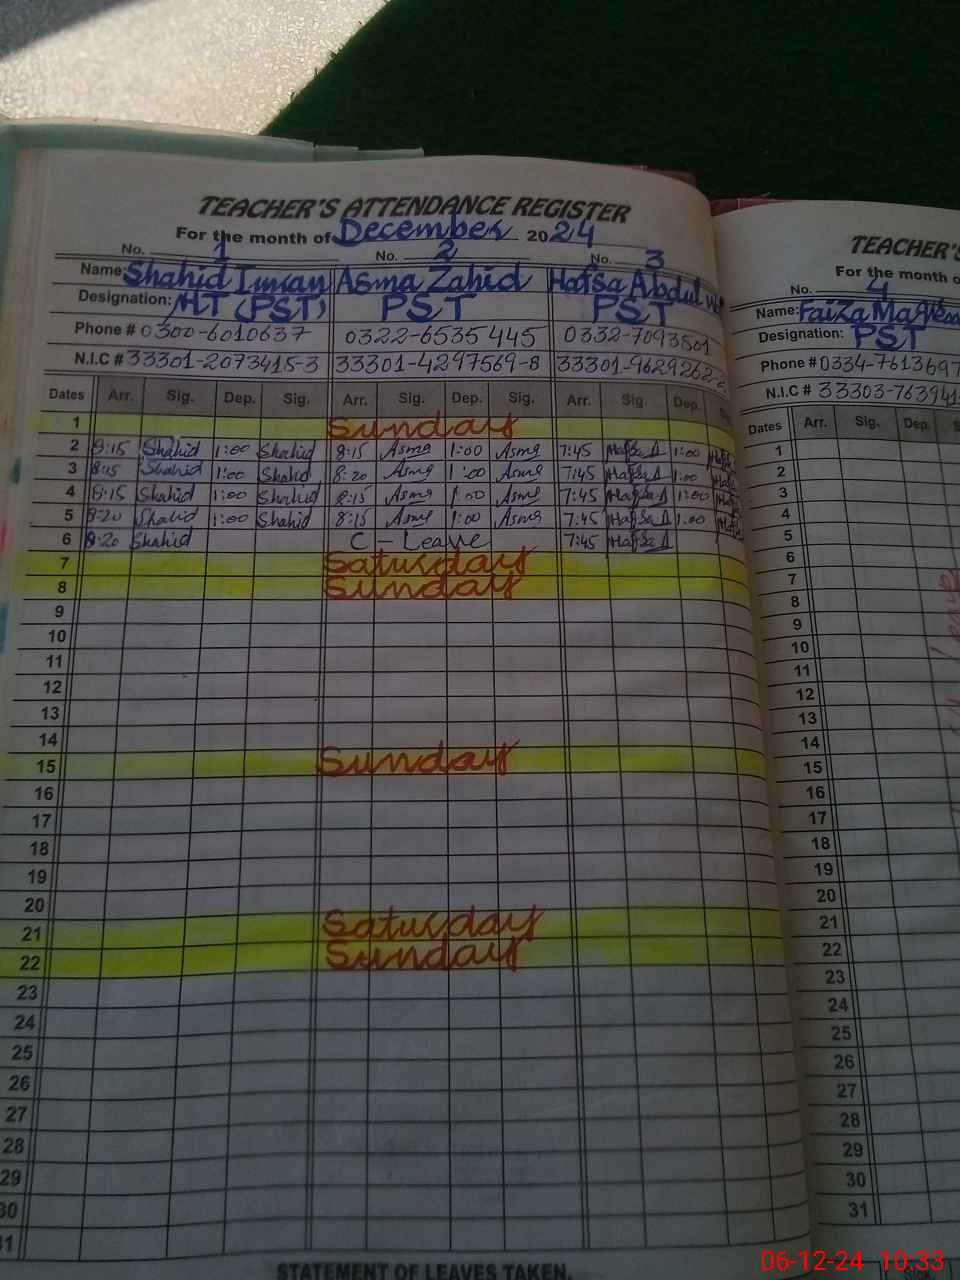 TEACHER'S ATTENDANCE REGISTER
For the month of December 2024
No. 1 No. 2 No. 3
Name: Shahid Imran Asma Zahid Hafsa Abdul
Designation: HT (PST) PST PST
Phone # 0300-6010637 0322-6535445 0332-7093501
N.I.C # 33301-2073415-3 33301-4297569-8 33301-9629262-
Dates Arr. Sig. Dep. Sig. Arr. Sig. Dep. Sig. Arr. Sig. Dep.
1 Sunday
2 8:15 Shahid 1:00 Shahid 8:15 Asma 1:00 Asma 7:45 Hafsa A 1:00
3 8:15 Shahid 1:00 Shahid 8:20 Asma 1:00 Asma 7:45 Hafsa A 1:00
4 8:15 Shahid 1:00 Shahid 8:15 Asma 1:00 Asma 7:45 Hafsa A 1:00
5 8:20 Shahid 1:00 Shahid 8:15 Asma 1:00 Asma 7:45 Hafsa A 1:00
6 8:20 Shahid C - Leave 7:45 Hafsa A
7 Saturday
8 Sunday
9
10
11
12
13
14
15 Sunday
16
17
18
19
20
21 Saturday
22 Sunday
23
24
25
26
27
28
29
30
31
STATEMENT OF LEAVES TAKEN.
TEACHER'S
For the month o
No. 4
Name: Faiza
Designation: PST
Phone # 0334-7613697
N.I.C # 33303-763941
Dates Arr. Sig. Dep.
1
2
3
4
5
6
7
8
9
10
11
12
13
14
15
16
17
18
19
20
21
22
23
24
25
26
27
28
29
30
31
06-12-24 10:33